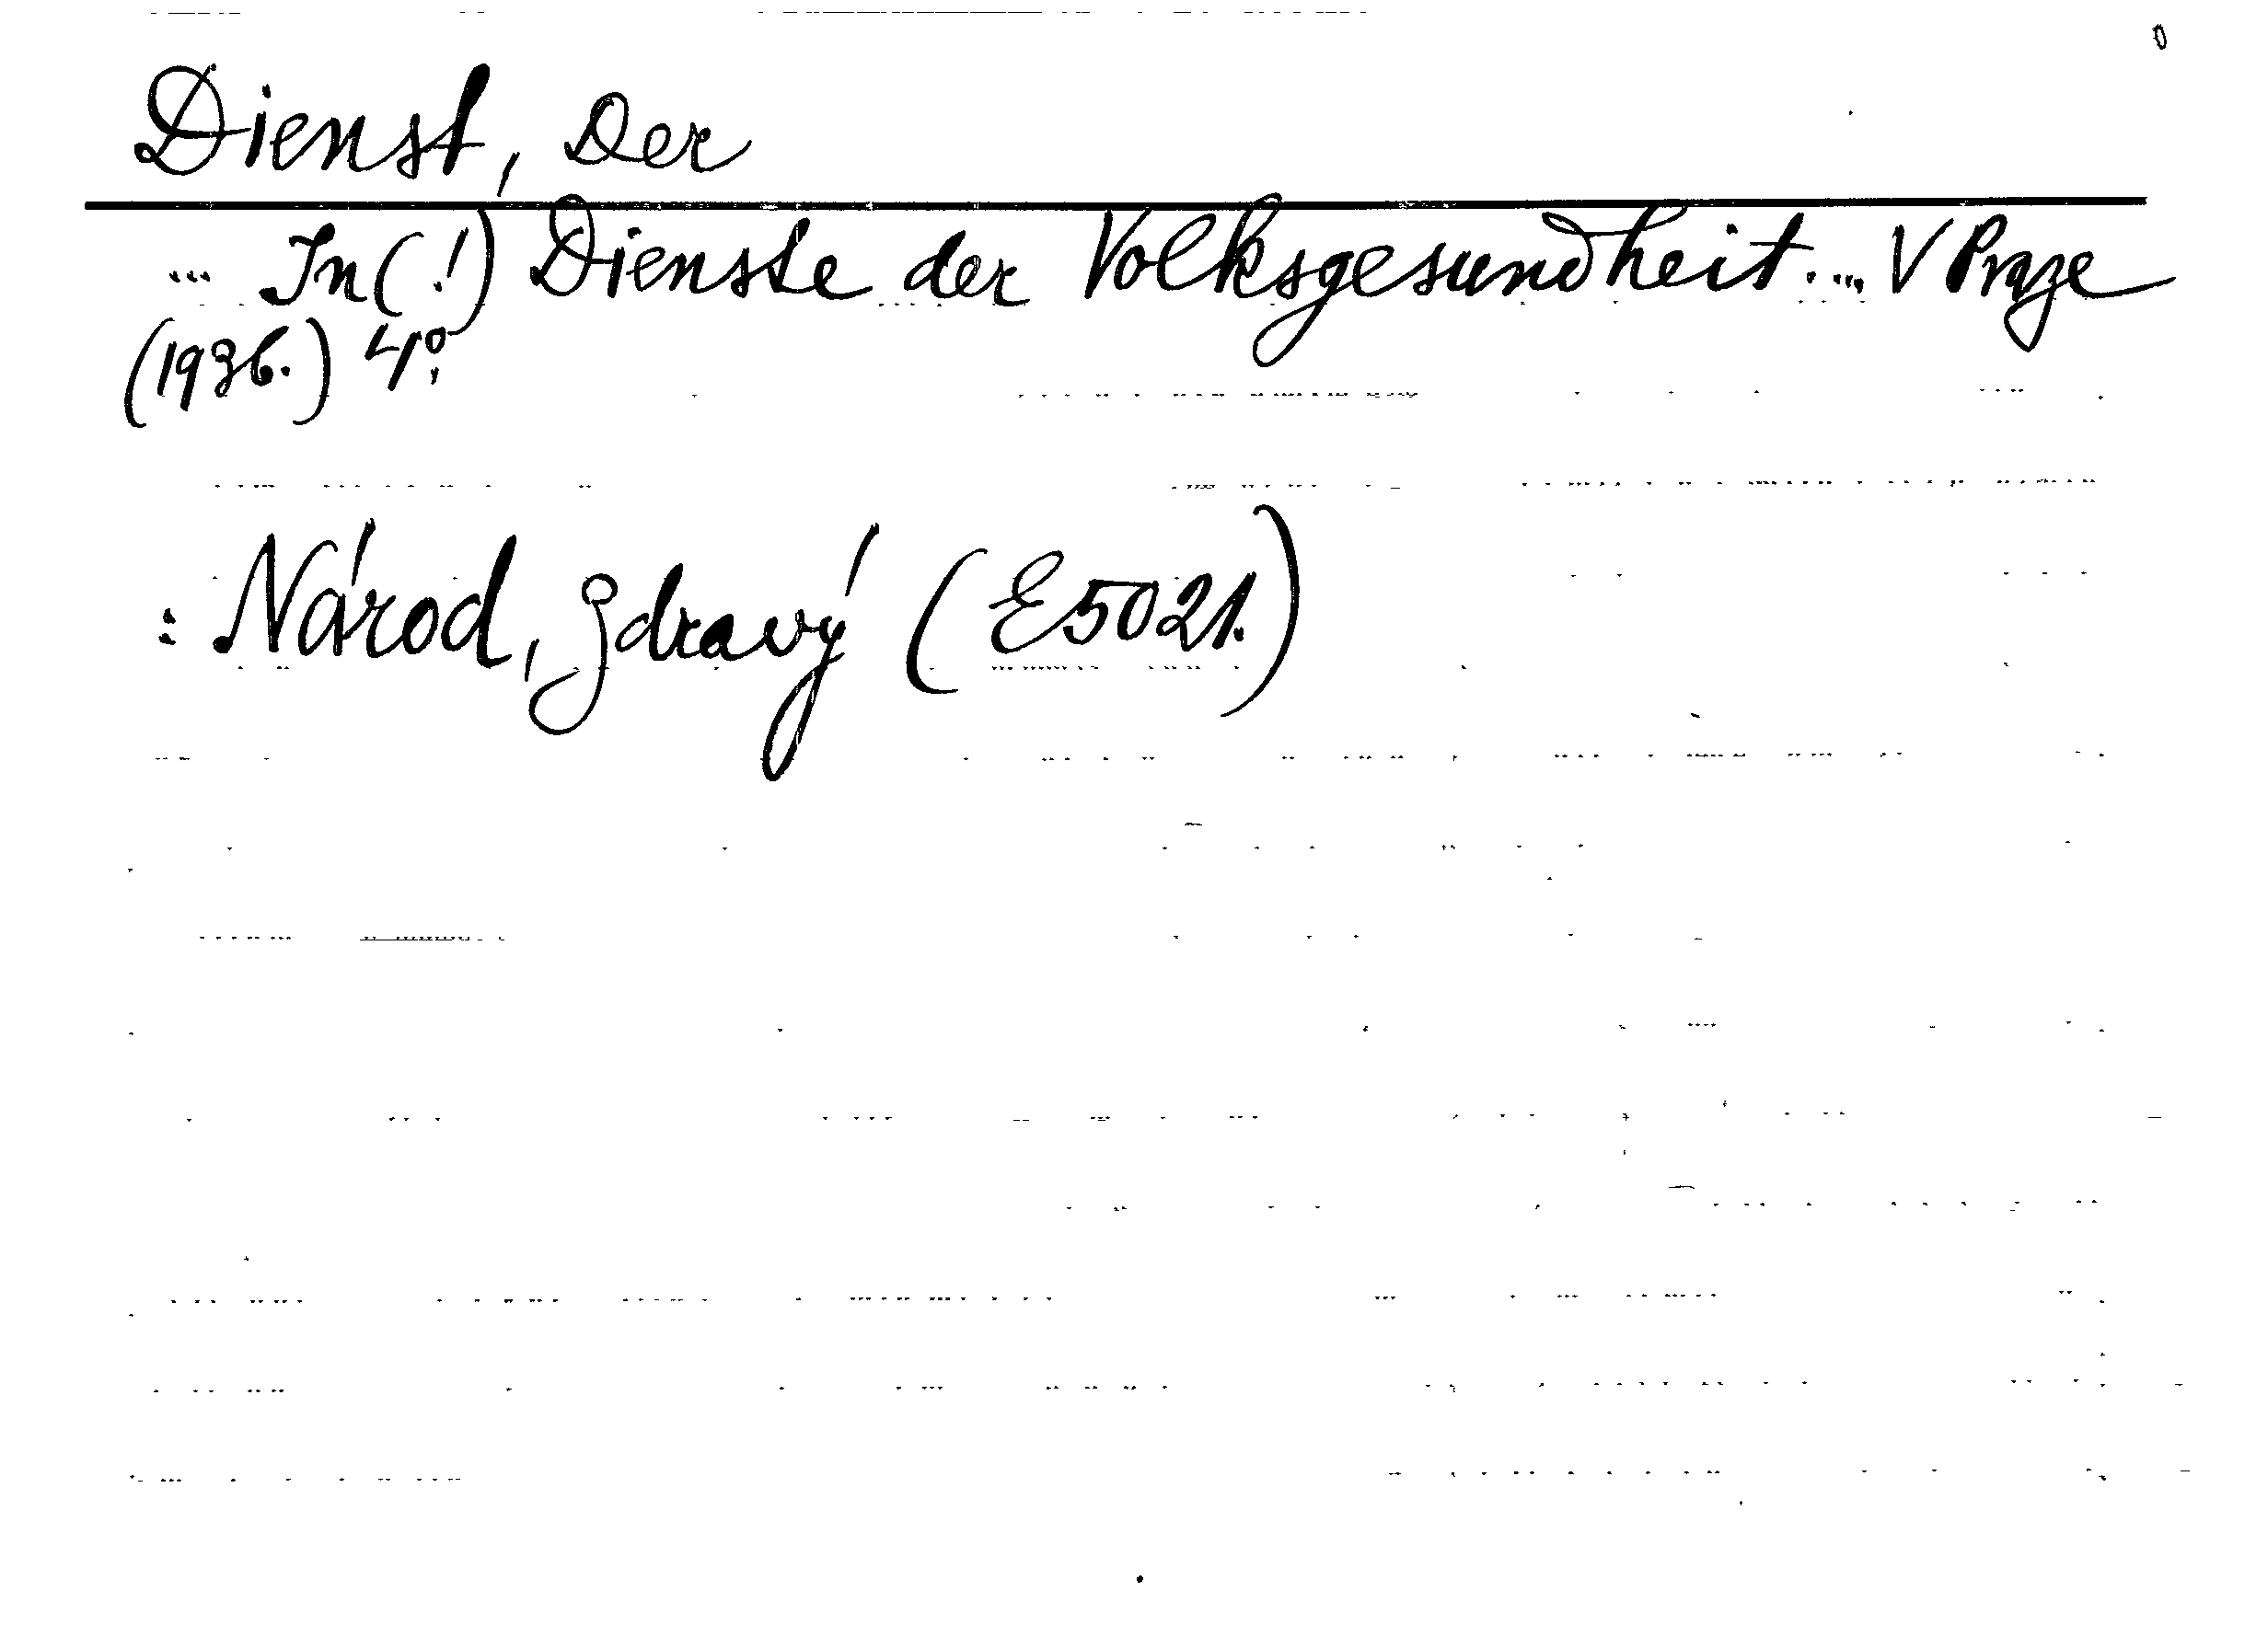 Dienst, Der
... In(!) Dienste der Volksgesundheit.... V Praze
(1936.) 4°.
: Národ, zdravý (E5021.)